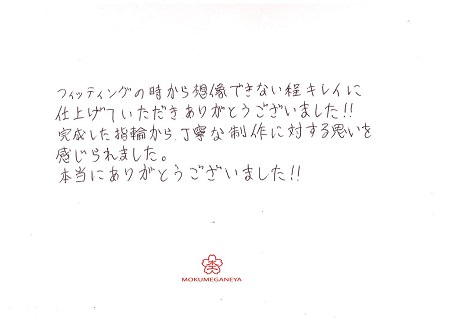 フィッティングの時から想像できない程キレイに
仕上げていただきありがとうございました!!
完成した指輪から、丁寧な制作に対する思いを
感じられました。
本当にありがとうございました!!
MOKUMEGANEYA